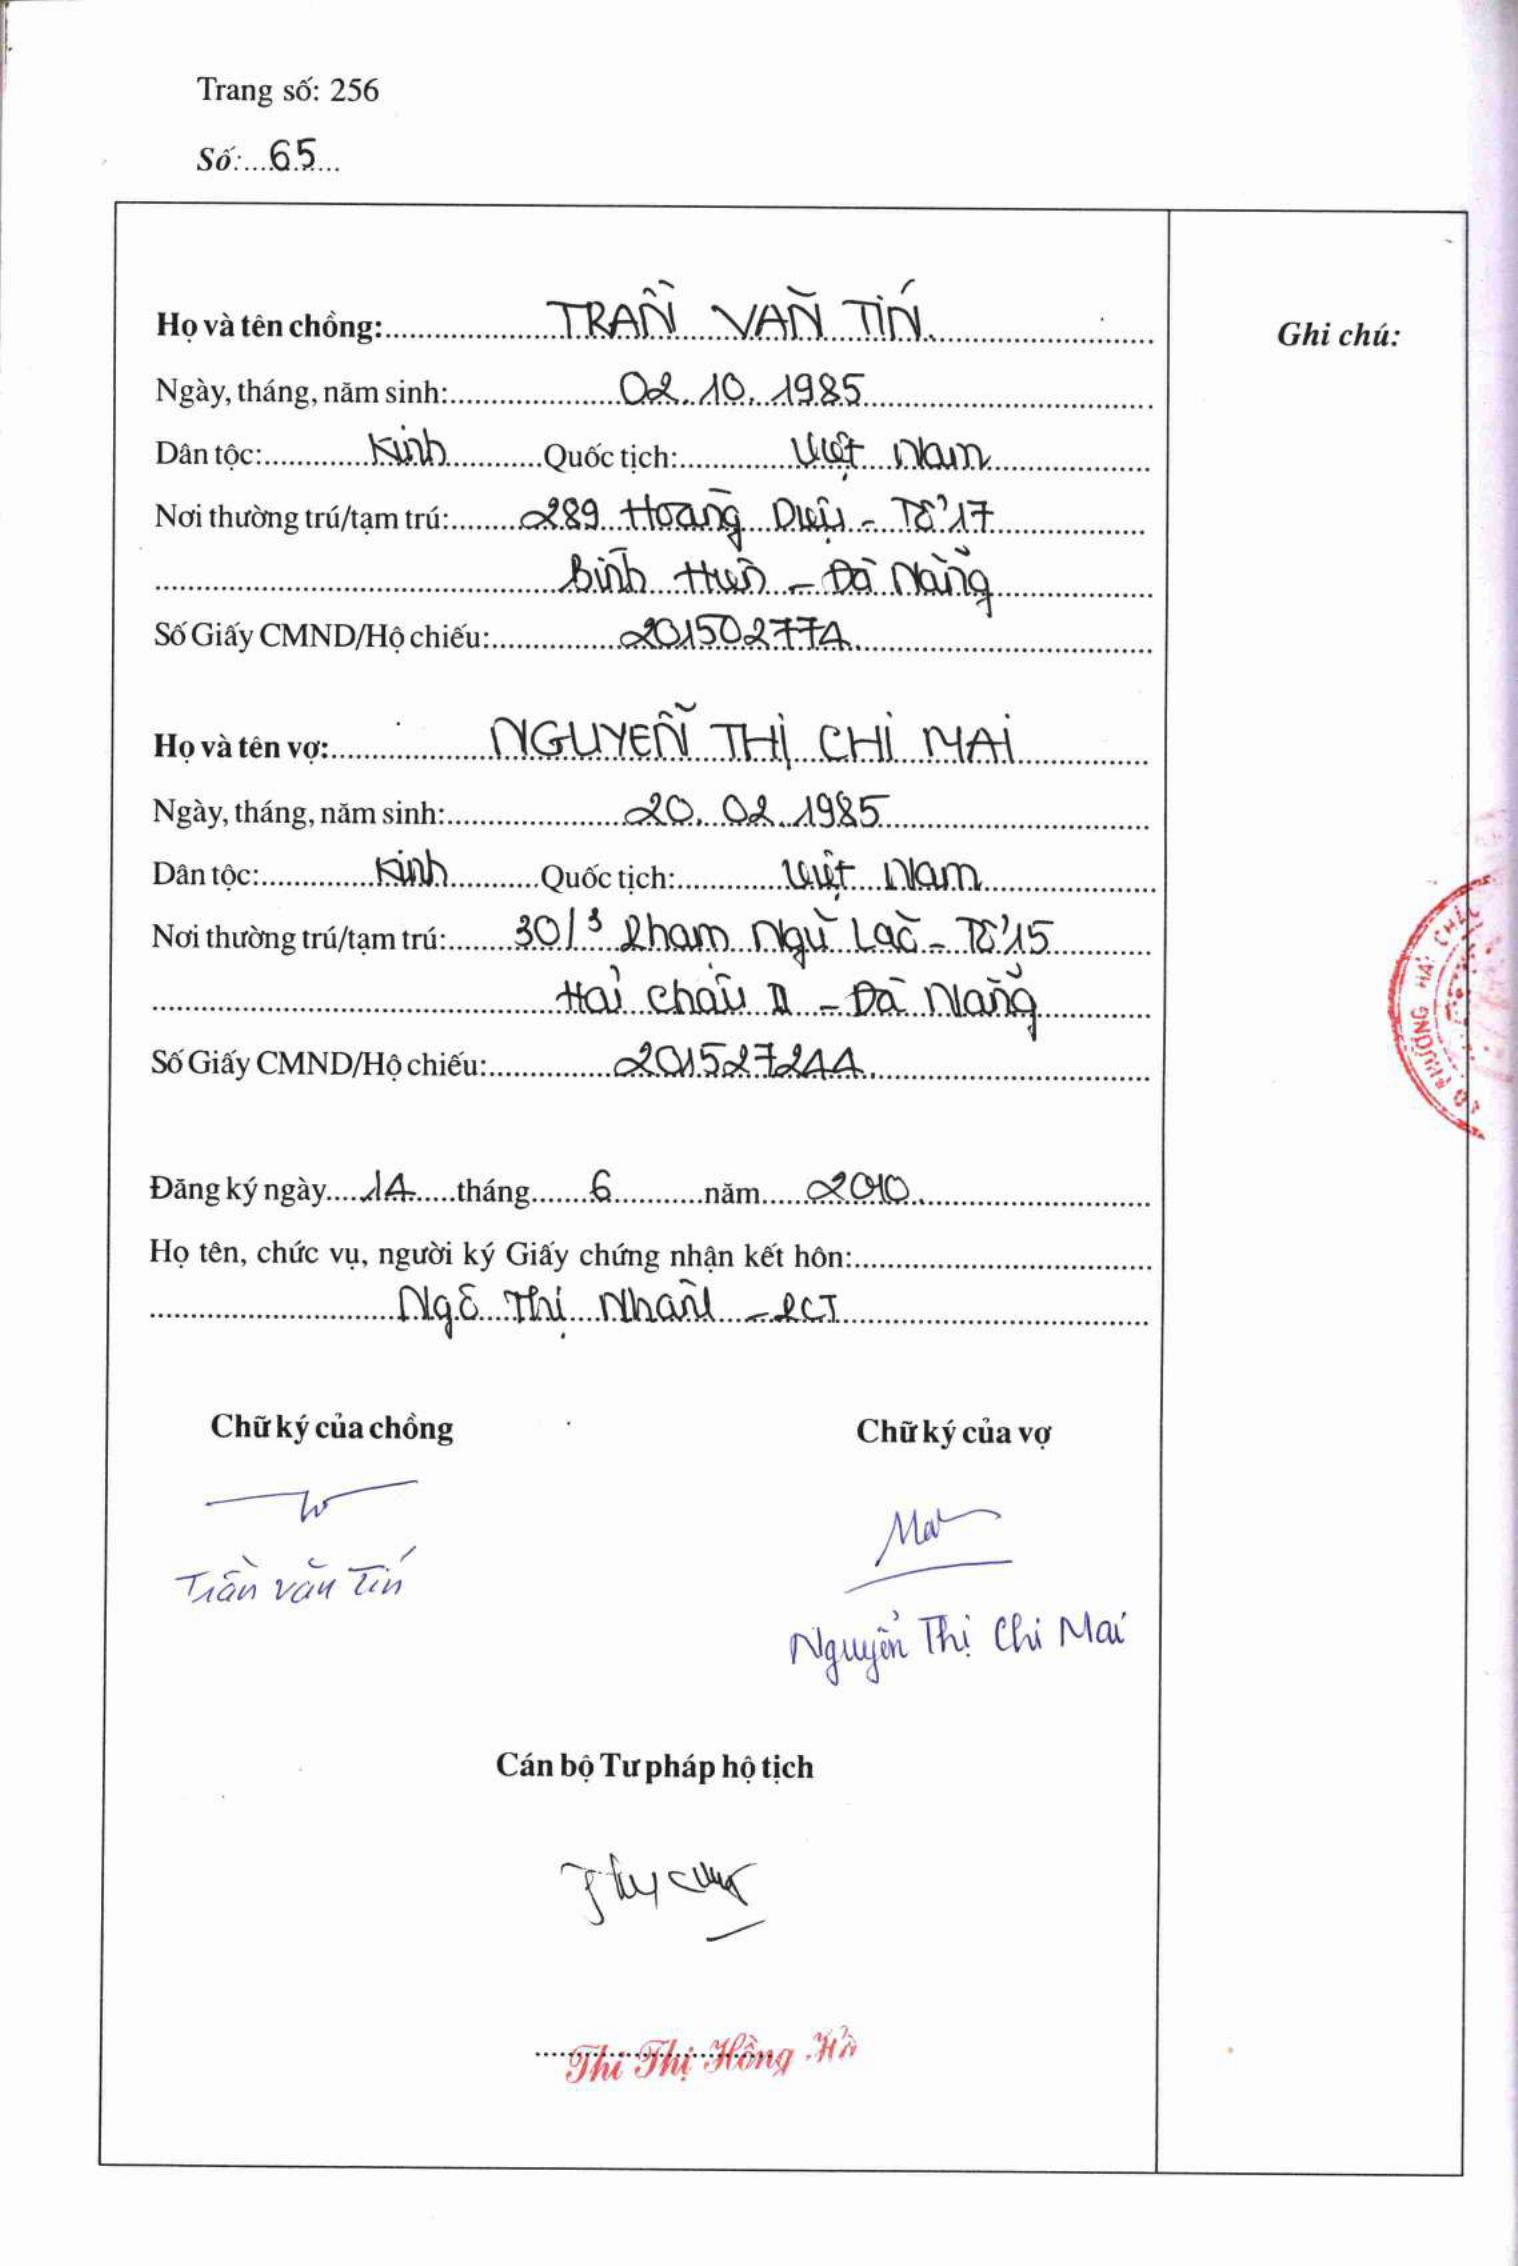 Trang số: 256
Số: 65
Họ và tên chồng: TRẦN VĂN TÍN
Ghi chú:
Ngày, tháng, năm sinh: 02.10.1985
Dân tộc: Kinh Quốc tịch: Việt Nam
Nơi thường trú/tạm trú: 289 Hoàng Diệu - Tổ 17
Bình Hiên - Đà Nẵng
Số Giấy CMND/Hộ chiếu: 201502774
Họ và tên vợ: NGUYỄN THỊ CHI MAI
Ngày, tháng, năm sinh: 20.02.1985
Dân tộc: Kinh Quốc tịch: Việt Nam
Nơi thường trú/tạm trú: 30/3 Phạm Ngũ Lão - Tổ 15
Hải Châu II - Đà Nẵng
Số Giấy CMND/Hộ chiếu: 201527244
PHƯỜNG HẢI
Đăng ký ngày 14 tháng 6 năm 2010
Họ tên, chức vụ, người ký Giấy chứng nhận kết hôn:
Ngô Thị Nhân - PCT
Chữ ký của chồng Chữ ký của vợ
Trần Văn Tín
Mai
Nguyễn Thị Chi Mai
Cán bộ Tư pháp hộ tịch
Thi Thị Hồng